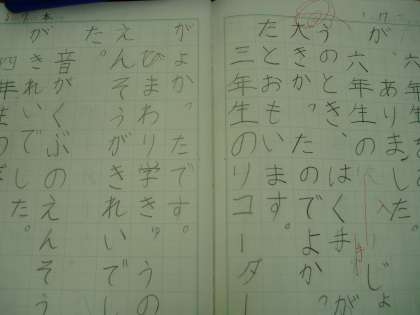 が、ありました。
六年生の入じょ
うのとき、はく手が
大きかったのでよかっ
たとおもいます。
三年生のリコーダー
がよかったです。
ひまわり学きゅうの
えんそうがきれいでし
た。
音がくぶのえんそう
がきれいでした。
四年生の